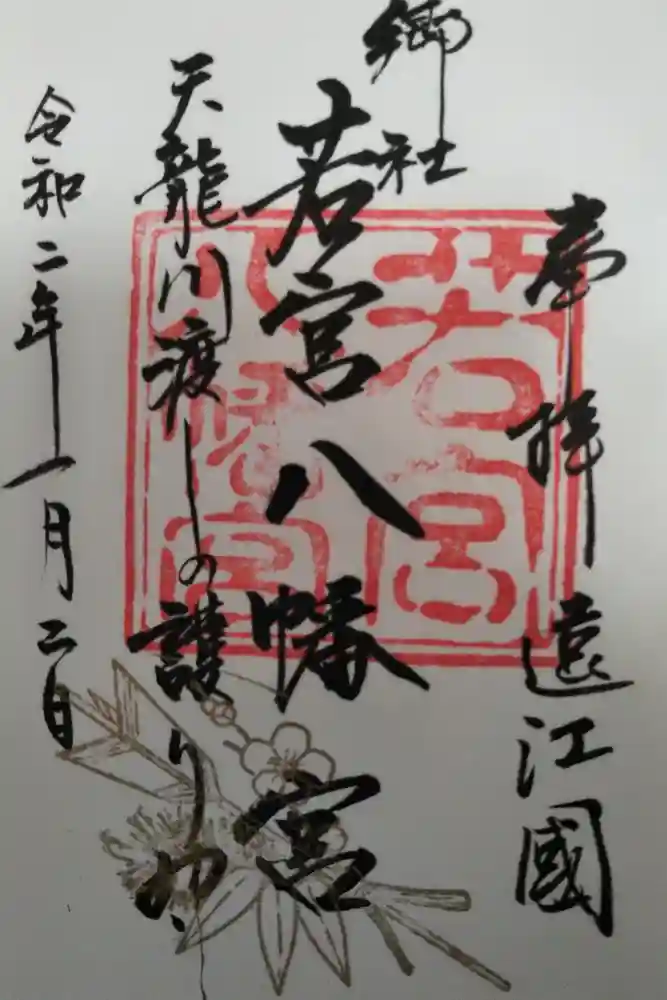 奉拝 遠江國
郷社
若宮八幡宮
天龍川渡しの護り神
令和二年一月二日
若宮八幡宮